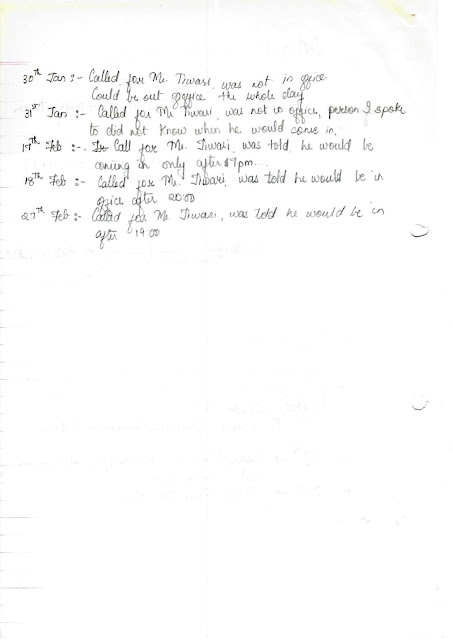 30th Jan :- Called for Mr. Tiwari, was not in office.
Could be out of office the whole day
31st Jan :- Called for Mr Tiwari, was not in office, person I spoke
to did not know when he would come in.
17th Feb :- Call for Mr. Tiwari, was told, he would be
coming in only after 7pm...
18th Feb :- Called for Mr. Tiwari, was told he would be in
office after 20:00
27th Feb :- Called for Mr. Tiwari, was told he would be in
after 19:00